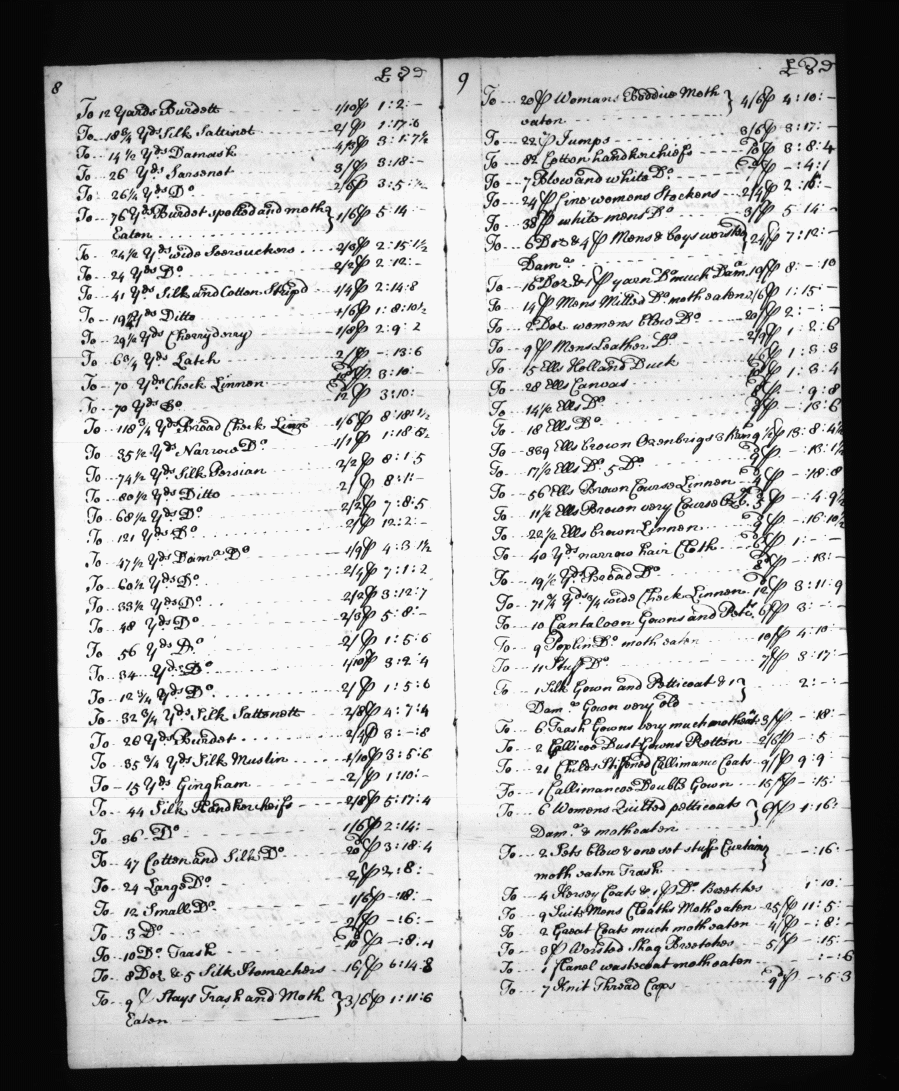 8
£ s d
To 12 Yards Burdett 1/10 ₱ 1:2:-
To 18¾ Yds Silk Sattinet 2/ ₱ 1:17:6
To 14½ Yds Damask 4/3 ₱ 3:1:7½
To 26 Yds Sarsenet 3/ ₱ 3:18:-
To 26¼ Yds Do 2/6 ₱ 3:5:
To 76 Yds Burdet spotted and moth
Eaten 1/6 ₱ 5:14
To 24½ Yds wide Seersuckers 2/3 ₱ 2:15:1½
To 24 Yds Do 2/2 ₱ 2:12:-
To 41 Yds Silk and Cotton Stripd 1/4 ₱ 2:14:8
To Yds Ditto 1/6 ₱ 1:8:10½
To 29½ Yds Cherryderry 1/8 ₱ 2:9:2
To 6¾ Yds Latch 2/ ₱ -:13:6
To 70 Yds Check Linnen ₱ 3:10:-
To 70 Yds Do 12 ₱ 3:10:-
To 118¾ Yds Broad Check Linn 1/6 ₱ 8:18:1½
To 35½ Yd Narrow Do 1/1 ₱ 1:18:5½
To 74½ Yds Silk Persian 2/2 ₱ 8:1:5
To 80½ Yds Ditto 2/ ₱ 8:1:-
To 68½ Yds Do 2/2 ₱ 7:8:5
To 121 Yds Do 2/ ₱ 12:2:-
To 47½ Yds Dama Do 1/9 ₱ 4:3:1½
To 60½ Yds Do 2/4 ₱ 7:1:2
To 33½ Yds Do 2/2 ₱ 3:12:7
To 48 Yds Do 2/3 ₱ 5:8:-
To 56 Yds Do 2/ ₱ 1:5:6
To 34 Yds Do 1/10 ₱ 3:2:4
To 12¾ Yds Do 2/ ₱ 1:5:6
To 32¾ Yds Silk Sattenett 2/8 ₱ 4:7:4
To 26 Yds Burdet 2/4 ₱ 3:-:8
To 35¾ Yds Silk Muslin 1/10 ₱ 3:5:6
To 15 Yds Gingham 2/ ₱ 1:10:-
To 44 Silk Handkercheifs 2/8 ₱ 5:17:4
To 36 Do 1/6 ₱ 2:14:-
To 47 Cotton and Silk Do 20 ₱ 3:18:4
To 24 Large Do 2/ ₱ 2:8:-
To 12 Small Do 1/6 ₱ -:18:-
To 3 Do 2/ ₱ -:6:-
To 10 Do Trash 10 ₱ -:8:4
To 8 Doz & 5 Silk Stomechers 16/ ₱ 6:14:8
To 9 ₱ Stays Trash and Moth
Eaten 3/6 ₱ 1:11:6
9
£ s d
To 20 ₱ Womans Boddice Moth
eaten 4/6 ₱ 4:10:-
To 22 ₱ Jumps 3/6 ₱ 3:17:-
To 82 Cotton handkerchiefs ₱ 3:8:4
To 7 Blow and white Do ₱ -:4:1
To 24 ₱ fine womens Stockens 2/4 ₱ 2:16:-
To 38 ₱ white mens Do 3/ ₱ 5:14
To 6 Doz & 4 ₱ Mens & boys worsted
Dama 24/ ₱ 7:12:-
To 16 Doz & 1 ₱ yarn Do much Dama 10/ ₱ 8:-:10
To 14 ₱ Mens Milled Do moth eaten 2/6 ₱ 1:15:-
To 2 Doz womens blow Do 20/ ₱ 2:-:-
To 9 ₱ Mens Leather Do 2/6 ₱ 1:2:6
To 15 Ells Holland Duck ₱ 1:3:3
To 28 Ells Canvas ₱ 1:3:4
To 14½ Ells Do ₱ -:9:8
To 18 Ells Do 9 ₱ -:13:6
To 339 Ells brown Ozenbrigs 9½ ₱ 13:8:4½
To 17½ Ells Do 5 Do ₱ -:13:1½
To 56 Ells Brown Course Linnen ₱ -:18:8
To 11½ Ells Brown very Course ₱ -:4:9½
To 22½ Ells brown Linnen ₱ -:16:10½
To 40 Yds narrow hair Cloth ₱ 1:-
To 19½ Yds Broad Do 8 ₱ -:13:-
To 71¾ Yds ¾ wide Check Linnen 12 ₱ 3:11:9
To 10 Cantaloon Gowns and Pets 6/ ₱ 3:-
To 9 Poplin Do moth eaten 10/ ₱ 4:10
To 11 Stuff Do 7/ ₱ 3:17:-
To 1 Silk Gown and Petticoat & 1
Dama Gown very old 2:-:-
To 6 Trash Gowns very much motheatn 3/ ₱ -:18:-
To 2 Callicoe Dust Gowns Rotten 2/6 ₱ -:5:-
To 21 Childs Stiffened Callimanco Coats 9/ ₱ 9:9
To 1 Callimancoe Double Gown 15/ ₱ -:15:-
To 6 Womens Quilted petticoats
Dama & motheaten 6/ ₱ 1:16:-
To 2 Sets blew & one set stuff Curtains
moth eaten Trash -:16:-
To 4 Kersey Coats & 1 ₱ Do Breetches 1:10:-
To 9 Suits Mens Cloaths Moth eaten 25/ ₱ 11:5:-
To 2 Great Coats much moth eaten 4/ ₱ -:8:-
To 3 ₱ Worsted Shag Breetches 5/ ₱ -:15:-
To 1 flanel wastecoat motheaten -:-:6
To 7 Knit Thread Caps 9 ₱ -:5:3